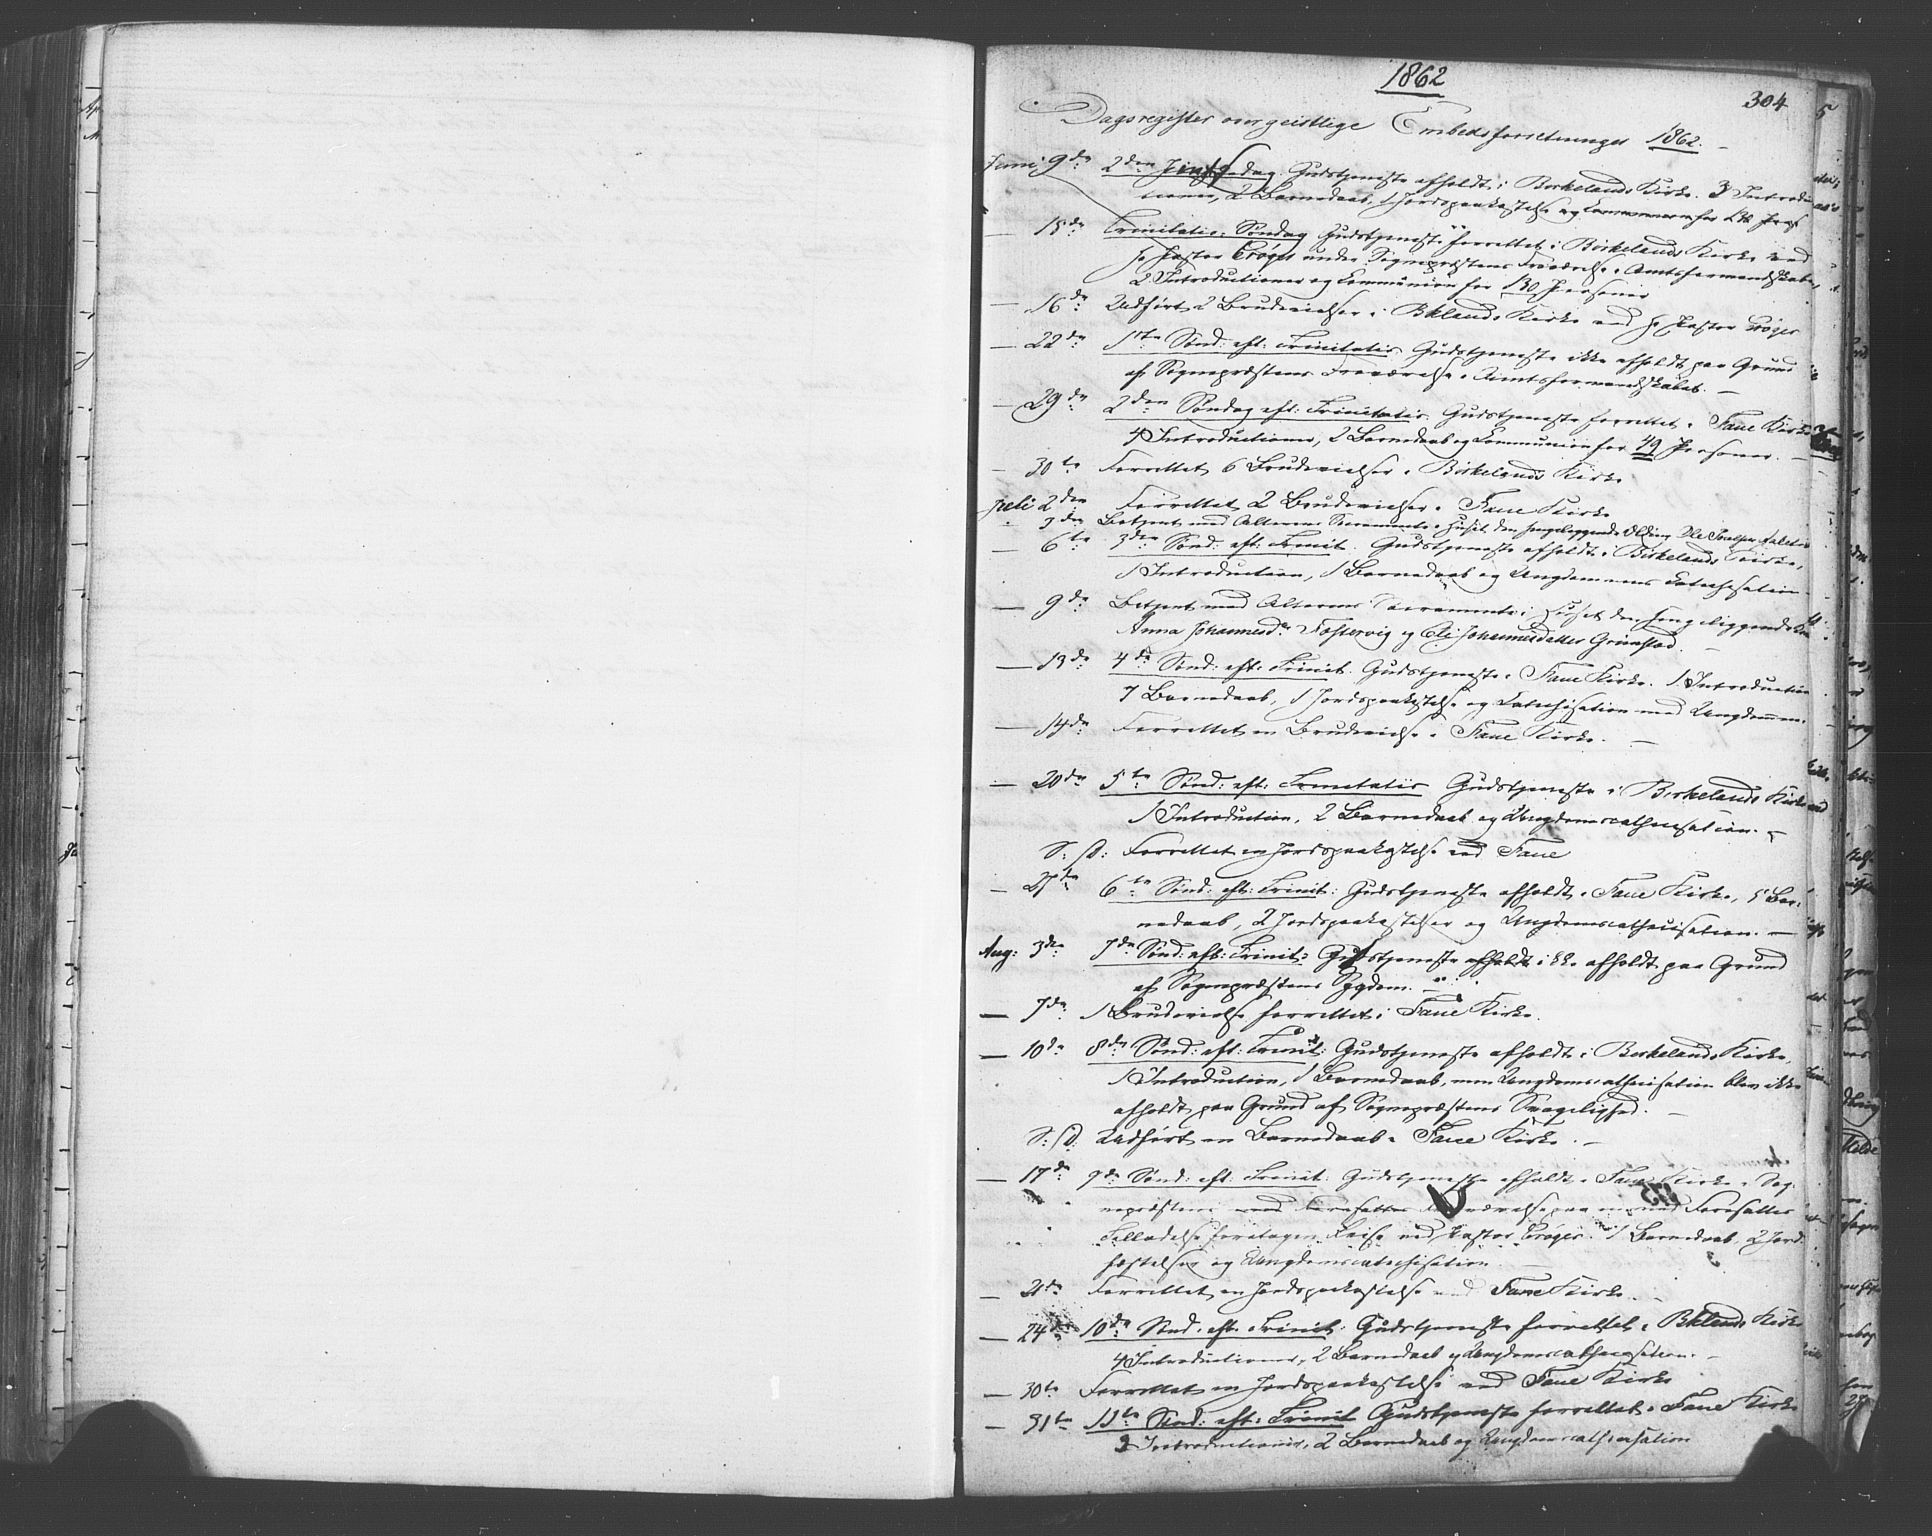 1862
304
Dagsregister over geistlige Embedsforretninger 1862. –
Juni 9de 2den Pintsedag. Gudstjeneste afholdt i Birkelands Kirke. 3 Introduc
tioner, 2 Barnedaab, 1 Jordspaakastelse og Communion for
— 15de Trinitatis Søndag Gudstjeneste forrettet i Birkelands Kirke ved
Hr Pastor Krøger under Sognepræstens Fraværelse i Amtsformandskabet,
2 Introductioner og Communion for 130 Personer
— 16de Udført 2 Brudevielser i Bklands Kirke ved Hr Pastor Krøger
— 22de 1ste Sønd: eft: Trinitatis Gudstjeneste ikke afholdt paa Grund
af Sognepræstens Fraværelse i Amtsformandskabet. —
— 29de 2den Søndag eft: Trinitatis Gudstjeneste forrettet i Fane Kirke
4 Introductioner, 2 Barnedaab og Communion for 49 Personer. —
— 30te Forrettet 6 Brudevielser i Birkelands Kirke
Juli 2den Forrettet 2 Brudevielser i Fane Kirke
3den Betjent med Alterens Sacramente i Huset den sengeliggende Olding Ole
— 6te 3die Sønd: eft: Trinit: Gudstjeneste afholdt i Birkelands Kirke,
1 Introduction, 1 Barnedaab og Ungdommens Catechisation.
— 9de Betjent med Alterens Sacramente i Huset den sengeliggende
Anna Johannesdr Fosservig og Eli Johannesdatter Grimstad. —
— 13de 4de Sønd: eft: Trinit. Gudstjeneste i Fane Kirke. 1 Introduction
7 Barnedaab, 1 Jordspaakastelse og Catechisation med Ungdommen.
— 14de Forrettet en Brudevielse i Fane Kirke. —
— 20de 5te Sønd: eft: Trinitatis Gudstjeneste i Birkelands Kirke
1 Introduction, 2 Barnedaab og Ungdomscathecisation. –
S: D: Forrettet en Jordspaakastelse ved Fane
— 27de 6te Sønd: eft: Trinit: Gudstjeneste afholdt i Fane Kirke, 5 Bar:
nedaab, 2 Jordspaakastelser og Ungdomscathecisation. —
Aug: 3die 7de Sønd: eft: Trinit: Gudstjeneste afholdt ikke afholdt paa Grund
af Sognepræstens Sygdom.
— 7de 1 Brudevielse forrettet i Fane Kirke.
— 10de 8de Sønd: eft: Trinit: Gudstjeneste afholdt i Birkelands Kirke,
1 Introduction, 1 Barnedaab, men Ungdomscathecisation blev ikke
afholdt paa Grund af Sognepræstens Svagelighed. —
S: D: Udført en Barnedaab i Fane Kirke. —
— 17de 9de Sønd: eft: Trinit: Gudstjeneste afholdt i Fane Kirke i Sog:
nepræstens med Foresattes Fraværelse paa en med Foresattes
Tilladelse foretagen Reise ved Pastor Krøger. 1 Barnedaab, 2 Jord:
fæstelser og Ungdomscatechisation
— 21de Forrettet en Jordspaakastelse ved Fane Kirke. —
— 24de 10de Sønd. eft. Trinit: Gudstjeneste forrettet i Bklands Kirke
4 Introductioner, 2 Barnedaab og Ungdomscathecisation. –
— 30te Forrettet en Jordspaakastelse ved Fane Kirke
— 31te 11te Sønd: eft: Trinit Gudstjeneste forrettet i Fane Kirke
2 Introductioner, 2 Barnedaab og Ungdomscathecisation